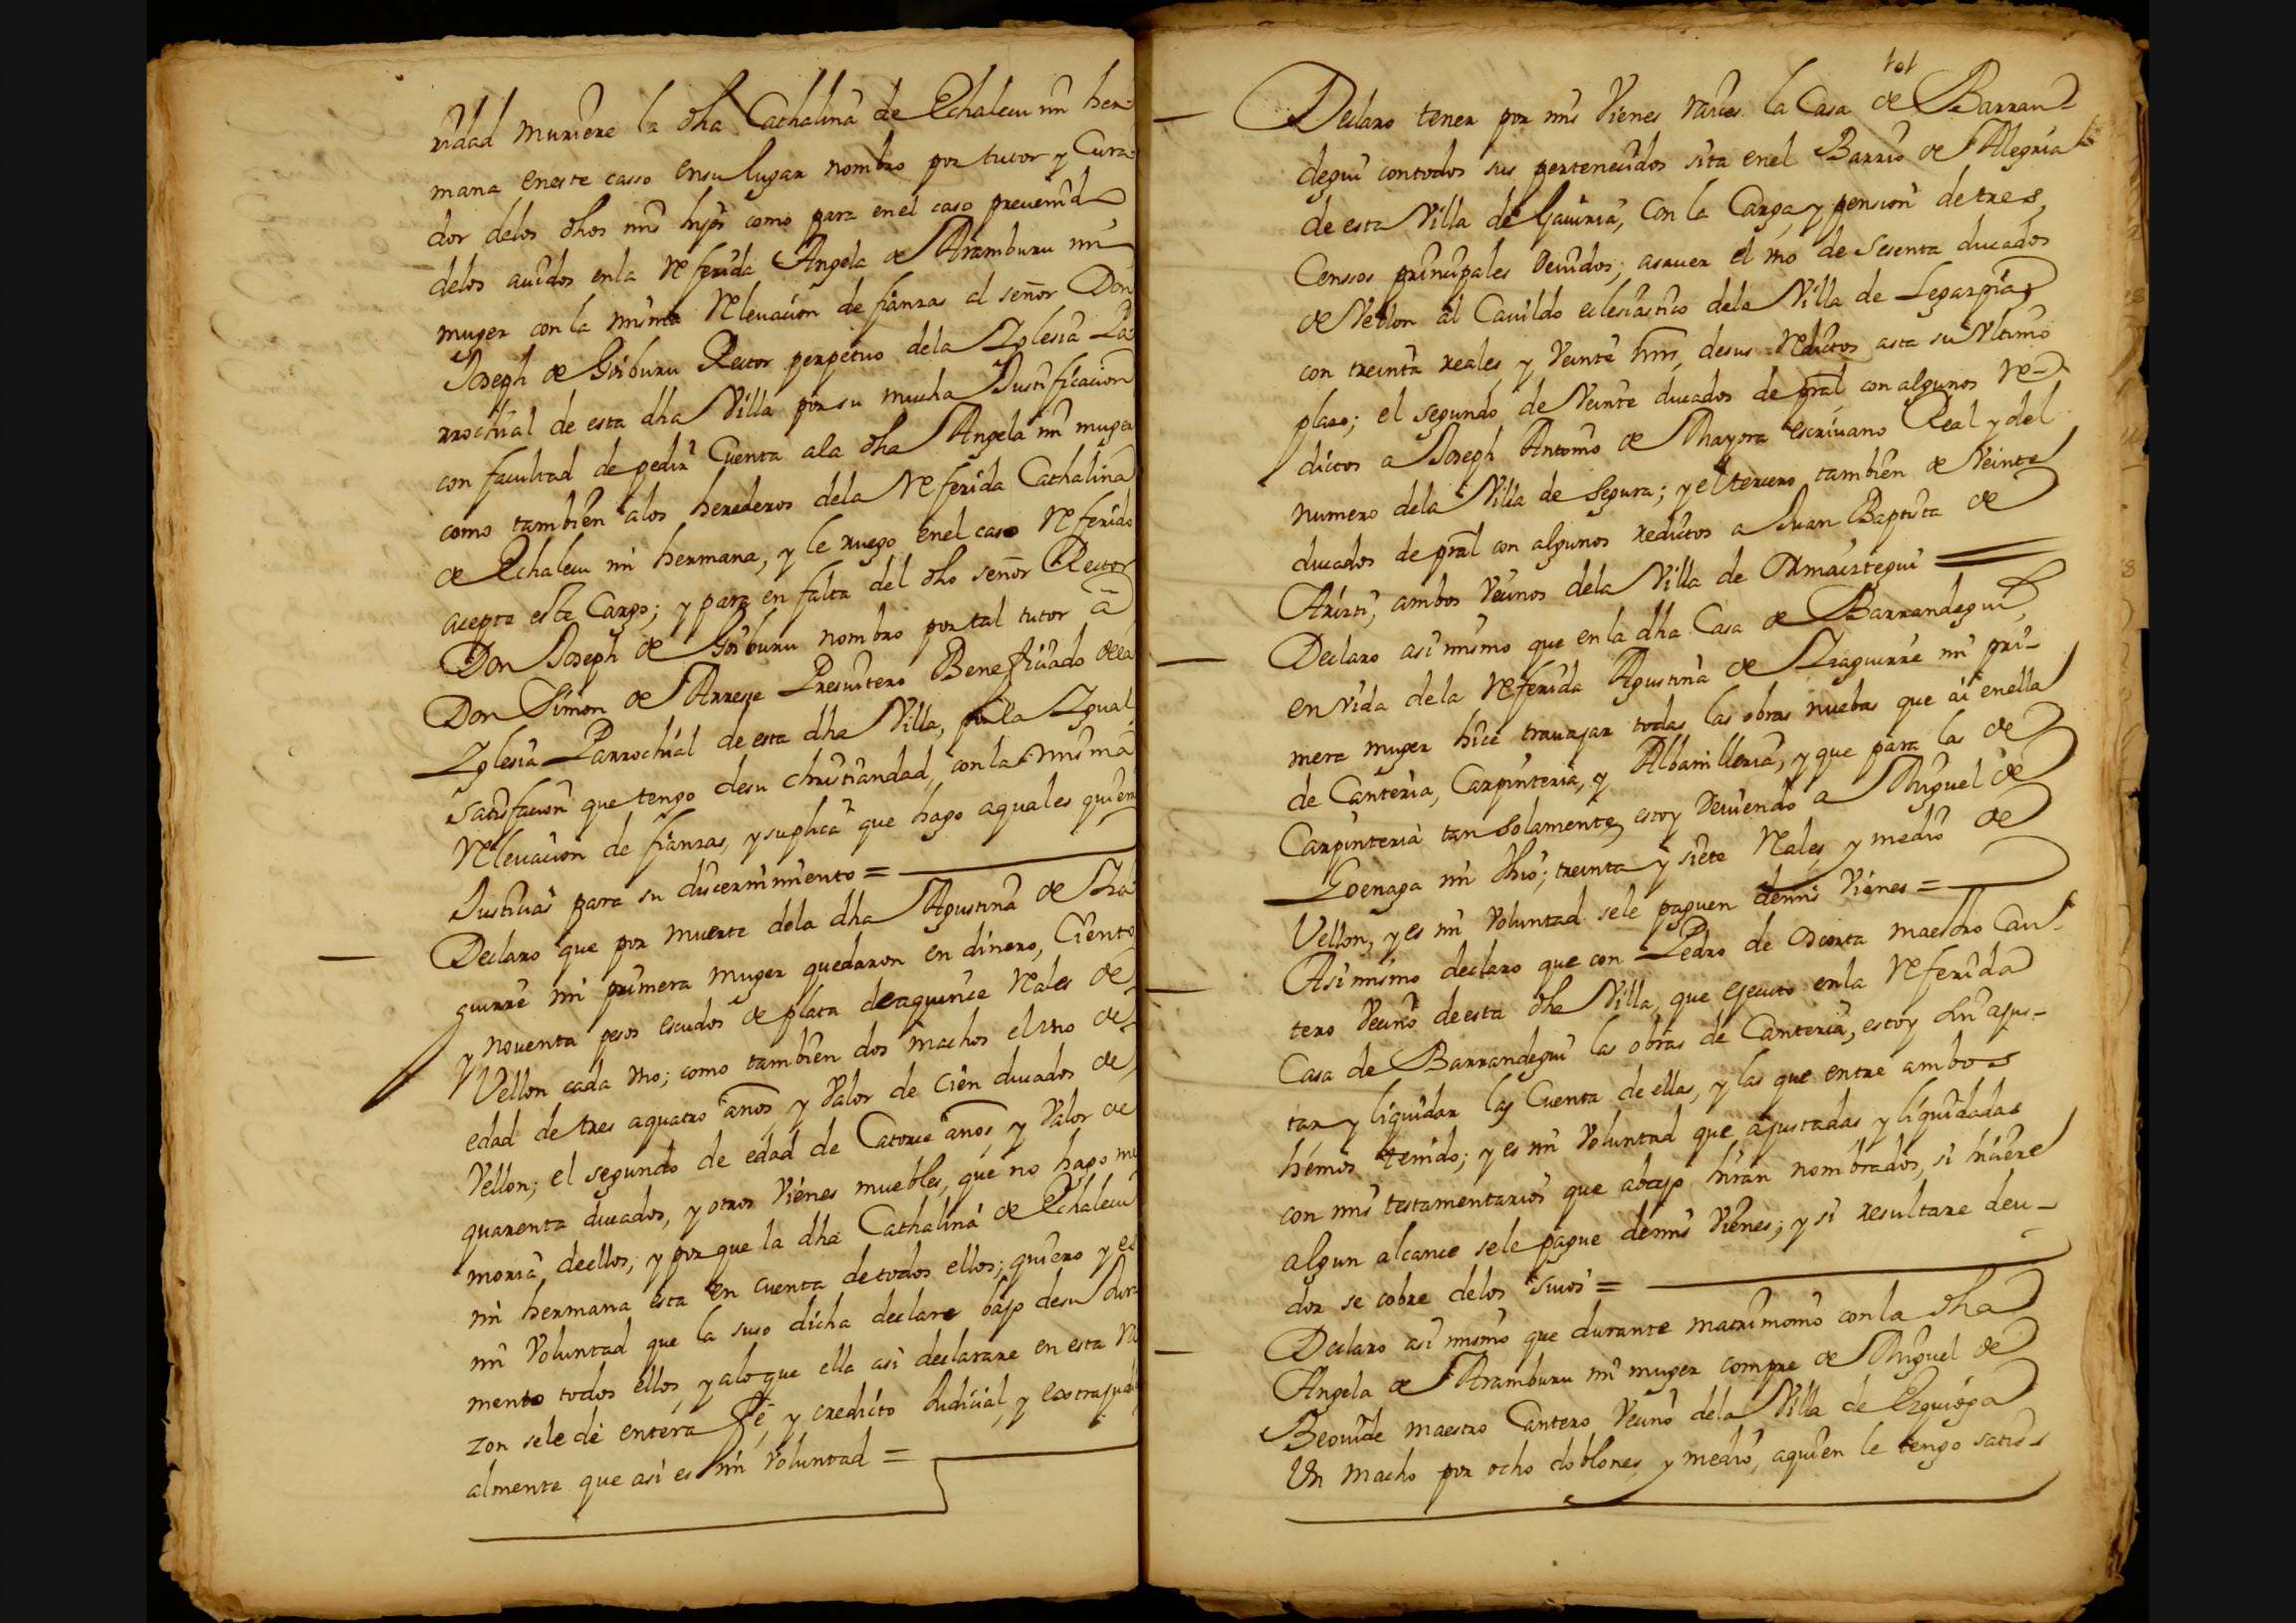 ridad muriere la dha Cathalina de Echalecu mi her-
mana eneste casso ensu lugar nombro por tutor y Cura-
dor delos dhos mis hijos como para enel caso preuenido
delos auidos enla referida Angela de Aramburu mi
muger con la misma releuacion de fianzas al señor Don
Joseph de Goiburu Rector perpetuo dela Yglesia Pa-
rrochial de esta dha Villa por su mucha Justificacion
con facultad de pedir Cuenta ala dha Angela mi muger
como tambien alos herederos dela referida Cathalina
de Echalecu mi hermana, y le ruego enel caso referido
acepte este Cargo; y para en falta del dho señor Rector
Don Joseph de Goiburu nombro por tal tutor a
Don Simon de Arrese Presuitero Beneficiado dela
Yglesia Parrochial de esta dha Villa, por la Ygual
satisfacion que tengo desu christiandad, con la misma
releuacion de fianzas, y suplica que hago aquales quiera
Justicias para su discernimiento =
Declaro que por muerte dela dha Agustina de Yza-
guirre mi primera muger quedaron en dinero, Ciento
y nouenta pesos escudos de plata deaquince reales de
Vellon cada vno; como tambien dos machos el vno de
edad de tres aquatro años y Valor de Cien ducados de
Vellon; el segundo de edad de Catorce años y Valor de
quarenta ducados, y otros Vienes muebles, que no hago me
moria deellos; y por que la dha Cathalina de Echalecu
mi hermana esta en cuenta detodos ellos; quiero y es
mi Voluntad que la suso dicha declare bajo desu Jura
mento todos ellos, y alo que ella asi declarare en esta ra
zon sele dè entera Fè, y credicto Judicial, y extrajudici
almente que asi es mi Voluntad =
101
Declaro tener por mis Vienes raices la Casa de Barran-
degui contodos sus pertenecidos sita enel Barrio de Alegria
de esta Villa de Gauiria, Con la Carga y pension de tres
Censsos principales deuidos; asauer el vno de Sesenta ducados
de Vellon al Cauildo eclesiastico dela Villa de Legazpia
con treinta reales y Veinte mrs, desus redictos asta su Vltimo
plazo; el segundo de Veinte ducados de pral con algunos re-
dictos a Joseph Antonio de Mayora escriuano Real y del
numero dela Villa de Segura; y el tercero tambien de Veinte
ducados de pral con algunos redictos a Juan Baptista de
Arizti, ambos Vecinos dela Villa de Ormaiztegui
Declaro asi mismo que en la dha Casa de Barrandegui
en vida de la referida Agustina de Yzaguirre mi pri-
mera muger hice trauajar todas las obras nuebas que ai enella
de Canteria, Carpinteria, y Albanilleria, y que para las de
Carpinteria tan solamente estoy Deuiendo a Miguel de
Goenaga mi thio; treinta y siete reales y medio de
Vellon, y es mi Voluntad sele paguen demis Vienes =
Asi mismo declaro que con Pedro de Oscorta maestro Can-
tero Vecino deesta dha Villa, que ejecuto enla referida
Casa de Barrandegui las obras de Canteria, estoy sin ajus-
tar y liquidar las Cuenta de ellas, y las que entre ambos
hemos tenido; y es mi Voluntad que ajustadas y liquidadas
con mis testamentarios que abajo hiran nombrados, si hiciere
algun alcance sele pague demis Vienes; y si resultare deu-
dor se cobre delos suios =
Declaro asi mismo que durante matrimonio con la dha
Angela de Aramburu mi muger compre de Miguel de
Beouide maestro Cantero Vecino dela Villa de Ezquioga
Un macho por ocho doblones y medio, aquien le tengo satis-